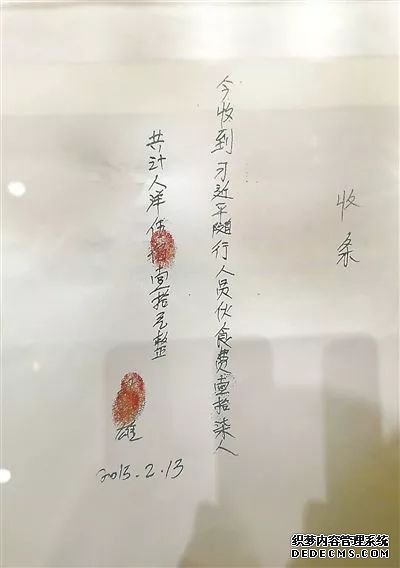 收条
今收到习近平随行人员伙食费壹拾柒人
共计人洋伍佰壹拾元整
雄
2015.2.13
织梦内容管理系统
DEDECMS.COM